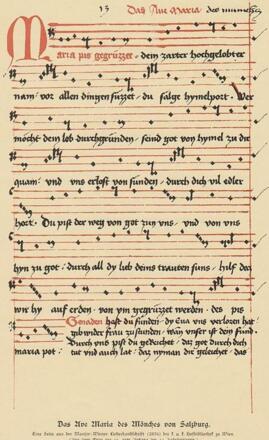 13 Das Ave Maria des münches
Maria pis gegrüzzet · dem zarter hochgelobter
nam · vor allen dingen süzzet · du salge hymelport · Wer
möcht dein lob durchgründen · seind got von hymel zu dir
quam · und uns erlost von sunden · durch dich vil edler
hort · Du pist der weg von got zun uns · und von uns
hyn zu got · durch all dy lib deins trauten suns · hilf der
wir hy auf erden · von ym gegrüzzet werden · des pis
Genaden hast du funden · dy Eva uns verloren hat ·
gib wider frau zustunden · wan unser ist dein fund ·
maria pot : Durch uns pist du · daz got durch dich
tut und auch lat · daz nyman die geleichet · das
Das Ave Maria des Mönches von Salzburg.